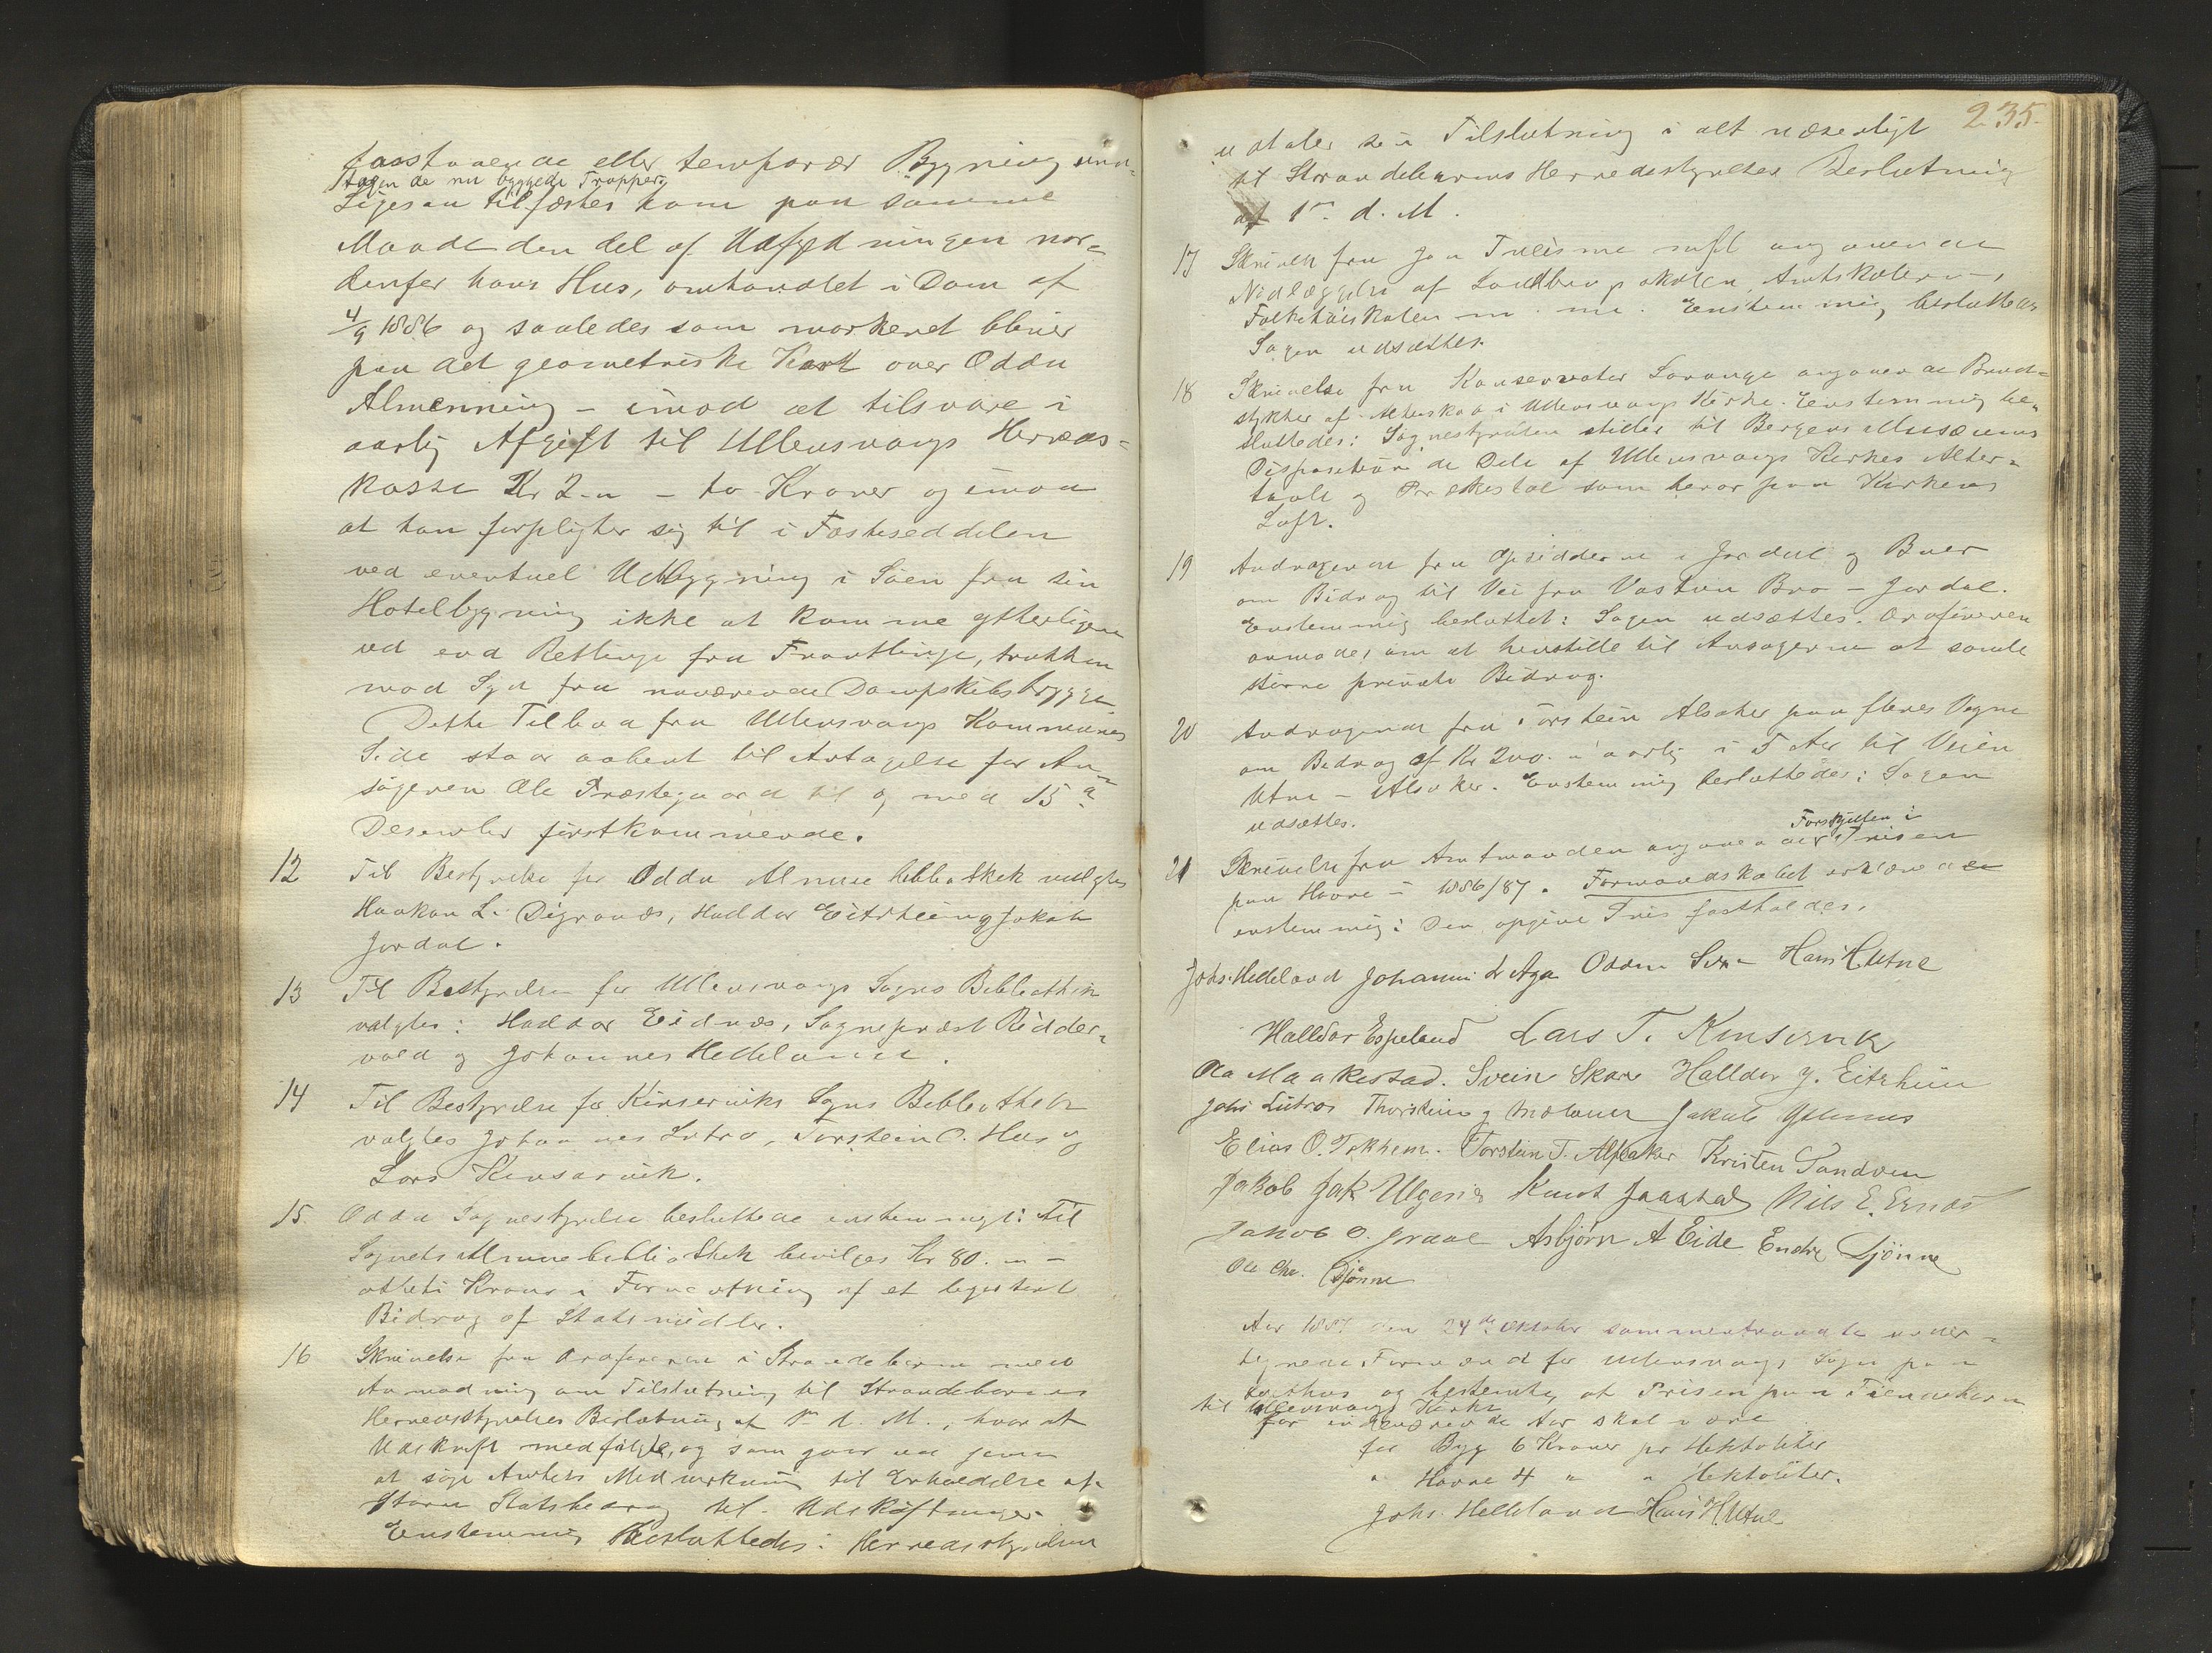 faststaaende eller temporær Bygning und-
tagen de nu byggede Trapper.
Ligesaa tilfæstes ham paa samme
Maade den del af Udfyldningen nor-
denfor hans Hus, omhandlet i Dom af
4/9 1886 og saaledes som markeret bliver
paa det geometriske Kart over Odda
Almenning - imod at tilsvare i
aarlig Afgift til Ullensvangs Herreds-
kasse Kr 2.„ - to Kroner og imod
at han forpligter sig til i Fæsteseddelen
ved eventuel Udbygning i Søen fra sin
Hotelbygning ikke at komme ytterligere
ud end Retlinje fra Frontlinje, trukken
mod Syd fra nuværende Dampskibsbrygge
Dette Tilbud fra Ullensvangs Kommunes
Side staar aabent til Antagelse for An-
søgeren Ole Præstegaard til og med 15de
Desember førstkommende.
12 Til Bestyrelse for Odda Almuebibliothek valgtes
Haakon L. Digranæs, Haldor Eitrheim og Jakob
Jordal.
13 Til Bestyrelse for Ullensvangs Sogns Bibliothek
valgtes: Haldor Eidnæs, Sogneprest Ridder-
vold og Johannes Helleland.
14 Til Bestyrelse for Kinserviks Sogns Bibliothek
valgtes Johannes Lutro, Torstein O. Hus og
Lars Kinsarvik.
15 Odda Sognestyrelse besluttede enstemmigt: Til
Sognets Almuebibliothek bevilges Kr 80.„ -
otteti Kroner i Forventning af et ligestort
Bidrag af Statsmidler.
16 Skrivelse fra Ordføreren i Strandebarm med
Anmodning om Tilslutning til Strandebarms
Herredsstyrelses Beslutning af 1ste d. M., hvoraf
Udskrift medfølgte, og som gaar ud paa
at søge Amtets Medvirkning til Erholdelse af
større Statsbidrag til Udskiftninger.
Enstemmig besluttedes: Herredsstyrelsen
235.
udtaler sin Tilslutning i alt væsentligt
til Strandebarms Herredsstyrelses Beslutning
af 1ste d. M.
17 Skrivelse fra Jon m. fl. angaaende
Nedlæggelse af Landbrugsskolen, Amtskolerne,
Folkehøiskolen m. m. Enstemmig besluttedes
Sagen udsættes.
18 Skrivelse fra Konservator Lorange angaaende Brud-
stykker af Alterskab i Ullensvangs Kirke. Enstemmig be-
sluttedes: Sognestyrelsen stiller til Bergens Musæums
Disposition de Dele af Ullensvangs Kirkes Alter-
tavle og Prækestol som beror paa Kirkens
Loft.
19 Andragende fra Opsidderne i Jordal og Buer
om Bidrag til Vei fra Vastun Bro - Jordal.
Enstemmig besluttet: Sagen udsættes. Ordføreren
anmodes om at henstille til Ansøgerne at samle
større private Bidrag.
20 Andragende fra Torstein Alsaker paa fleres Vegne
om Bidrag af Kr 200.„ aarlig i 5 Aar til Veien
Utne - Alsaker. Enstemmig besluttedes: Sagen
udsættes.
Forskjellen i
21 Skrivelse fra Amtmanden angaaende Prisen
paa Havre i 1886/87. Formandskabet erklærede
enstemmig: Den opgivne Pris fastholdes.
Johs. Helleland Johannes L Aga Oddm Hans H Utne
Halldor Espeland Lars T. Kinservik
Ola Maakestad. Svein Skare Halldor J. Eitrheim
Johs Lutro Thorstein Jakob
Elias O. Tokheim. Torstein T. Alsaker Kristen Sandven
Jakob Jak Ulgenes Knut Jaastad Nils E. Ernæs
Jakob O. Jordal Asbjørn A Eide Endre Djønne
Ole Chr. Djønne
Aar 1887 den 24de Oktober sammentraadte under-
tegnede Formænd for Ullensvangs Sogn paa
Lofthus og bestemte, at Prisen paa Tiendekorn
til Ullensvangs Kirke
for indeværende Aar skal være
for Byg 6 Kroner pr Hektoliter
„ Havre 4 „ „ Hektoliter.
Johs. Helleland Hans H Utne